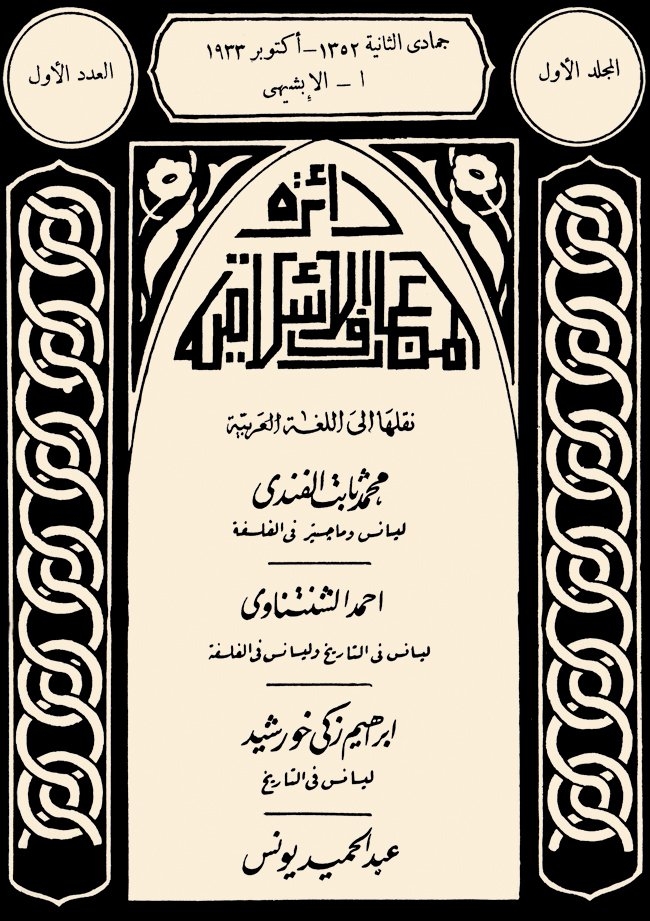 المجلد الأول
جمادى الثانية ١٣٥٢ – أكتوبر ١٩٣٣
ا – الإبشيهى
العدد الأول
دائرة
المعارف الإسلامية
نقلها إلى اللغة العربية
محمد ثابت الفندى
ليسانس وماجستير فى الفلسفة
احمد الشنتناوى
ليسانس فى التاريخ وليسانس فى الفلسفة
ابرهيم زكى خورشيد
ليسانس فى التاريخ
عبد الحميد يونس